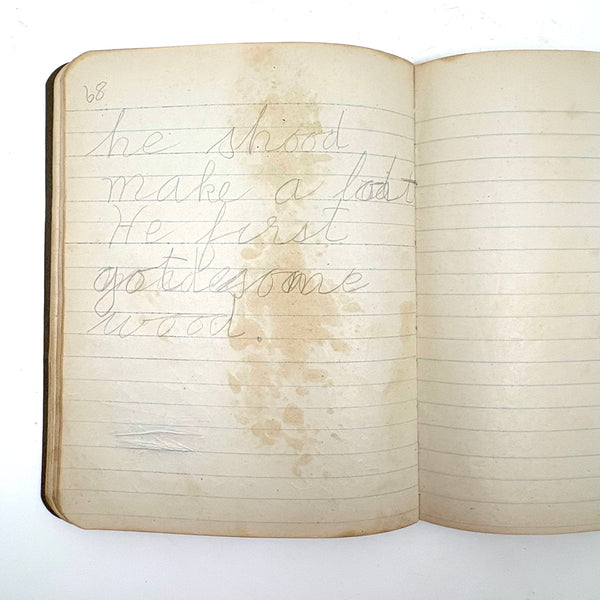 68
he shood
make a
He first
some
wood.